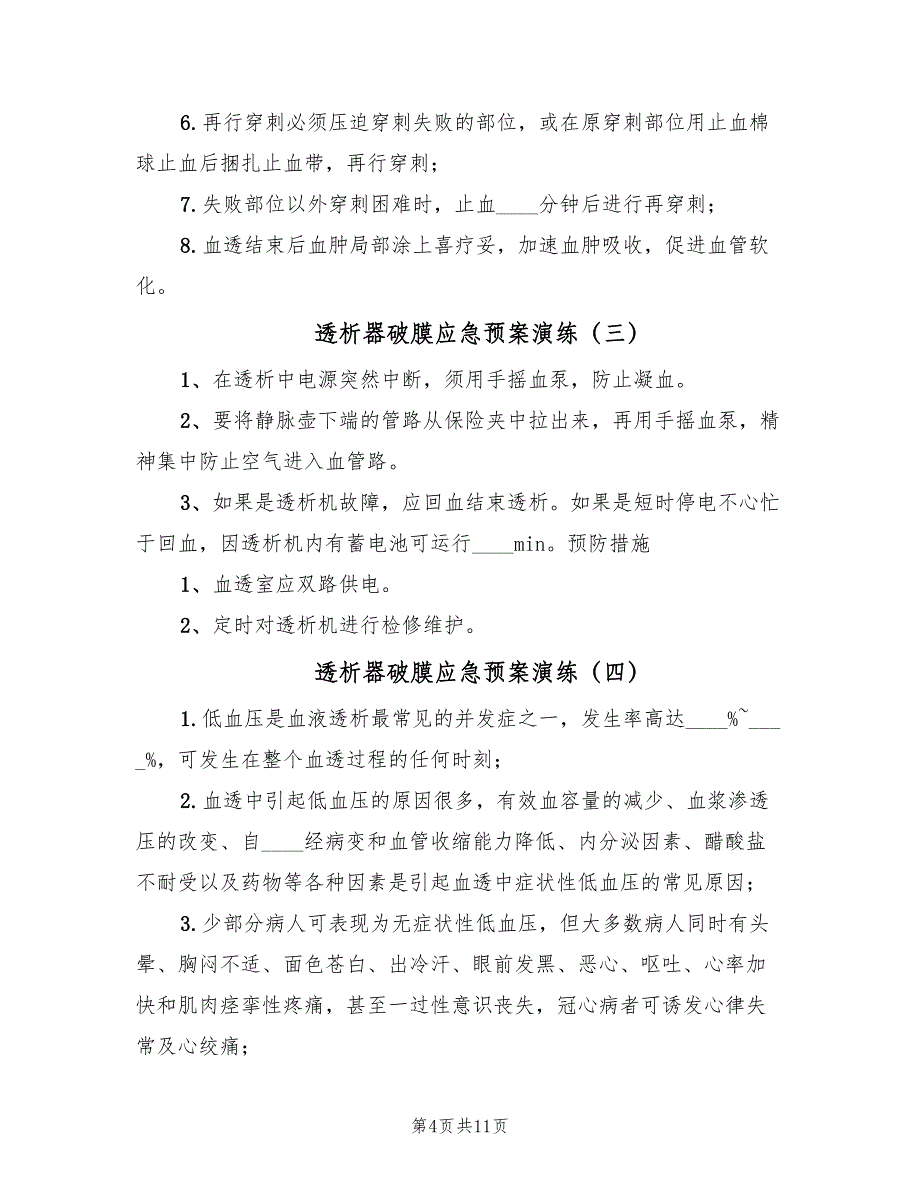 6.再行穿刺必须压迫穿刺失败的部位，或在原穿刺部位用止血棉
球止血后捆扎止血带，再行穿刺；
7.失败部位以外穿刺困难时，止血____分钟后进行再穿刺；
8.血透结束后血肿局部涂上喜疗妥，加速血肿吸收，促进血管软
化。
透析器破膜应急预案演练（三）
1、在透析中电源突然中断，须用手摇血泵，防止凝血。
2、要将静脉壶下端的管路从保险夹中拉出来，再用手摇血泵，精
神集中防止空气进入血管路。
3、如果是透析机故障，应回血结束透析。如果是短时停电不心忙
于回血，因透析机内有蓄电池可运行____min。预防措施
1、血透室应双路供电。
2、定时对透析机进行检修维护。
透析器破膜应急预案演练（四）
1.低血压是血液透析最常见的并发症之一，发生率高达____%~___
_%，可发生在整个血透过程的任何时刻；
2.血透中引起低血压的原因很多，有效血容量的减少、血浆渗透
压的改变、自____经病变和血管收缩能力降低、内分泌因素、醋酸盐
不耐受以及药物等各种因素是引起血透中症状性低血压的常见原因；
3.少部分病人可表现为无症状性低血压，但大多数病人同时有头
晕、胸闷不适、面色苍白、出冷汗、眼前发黑、恶心、呕吐、心率加
快和肌肉痉挛性疼痛，甚至一过性意识丧失，冠心病者可诱发心律失
常及心绞痛；
第4页共11页